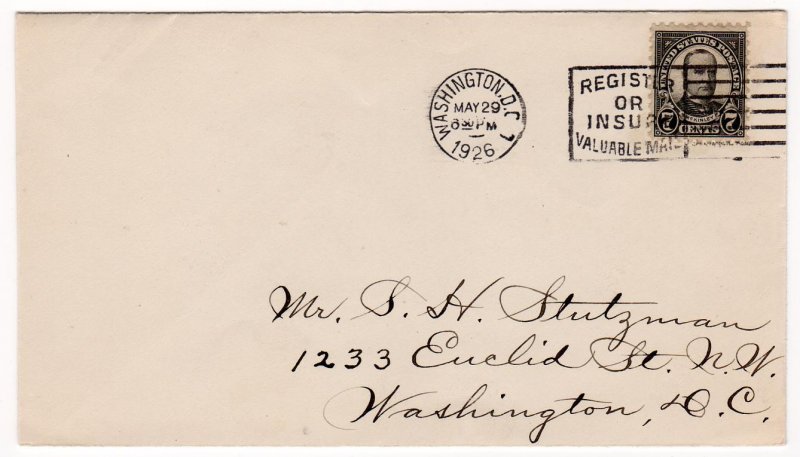 WASHINGTON, D.C. 1
MAY 29
6 30 PM
1926
REGISTER
OR
INSURE
VALUABLE MAIL
UNITED STATES POSTAGE
7 CENTS 7
Mr. S. H. Stutzman
1233 Euclid St. N.W.
Washington, D.C.